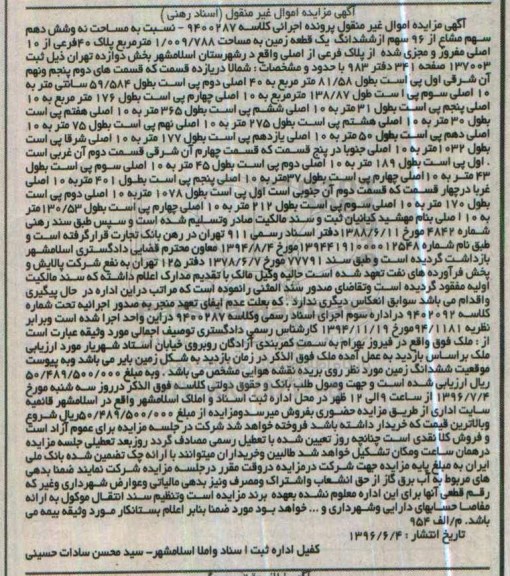 آگهی مزایده اموال غیر منقول (اسناد رهنی)
آگهی مزایده اموال غیر منقول پرونده اجرائی کلاسه ۹۴۰۰۲۸۷ - نسبت به مساحت نه وشش دهم
سهم مشاع از ۹۶ سهم ازششدانگ یک قطعه زمین به مساحت ۱/۰۰۹/۷۸۸ مترمربع پلاک ۴۰فرعی از ۱۰
اصلی مفروز و مجزی شده از پلاک فرعی از اصلی واقع درشهرستان اسلامشهر بخش دوازده تهران ذیل ثبت
۱۳۷۰۰۳ صفحه ۳۴۱ دفتر ۹۸۳ با حدود و مشخصات : شمالا دریازده قسمت که قسمت های دوم پنجم ونهم
آن شرقی اول پی است بطول ۸۱/۵۸ متر مربع به ۴۰ اصلی دوم پی است بطول ۵۹/۵۸۴ سانتی متر به
۱۰ اصلی سوم پی است طول ۱۳۸/۸۷ مترمربع به ۱۰ اصلی چهارم پی است بطول ۱۷۶ متر مربع به ۱۰
اصلی پنجم پی است بطول ۳۱ متر به ۱۰ اصلی ششم پی است بطول ۳۶۵ متر به ۱۰ اصلی هفتم پی است
بطول ۳۰ متر به ۱۰ اصلی هشتم پی است بطول ۲۷۵ متر به ۱۰ اصلی نهم پی است بطول ۷۵ متر به ۱۰
اصلی دهم پی است بطول ۵۰ متر به ۱۰ اصلی یازدهم پی است بطول ۱۷۷ متر به ۱۰ اصلی شرقا پی است
بطول ۱۰۳۲متر به ۱۰ اصلی جنوبا در پنج قسمت که قسمت چهارم آن شرقی قسمت دوم آن غربی است
. اول پی است بطول ۱۸۹ متر به ۱۰ اصلی دوم پی است بطول ۴۵ متر به ۱۰ اصلی سوم پی است بطول
۴۳ متر به ۱۰ اصلی چهارم پی است بطول ۳۷متر به ۱۰ اصلی پنجم پی است بطول ۴۰۱متر به ۱۰ اصلی
غربا درچهار قسمت که قسمت دوم آن جنوبی است اول پی است بطول ۱۰۷۸ متر به ۱۰ اصلی دوم پی است
بطول ۱۷۰ متر به ۱۰ اصلی سوم پی است بطول ۲۱۲ متر به ۱۰ اصلی چهارم پی است بطول ۱۳۰/۵۳متر
به ۱۰ اصلی بنام مهشید کیانیان ثبت و سند مالکیت صادر وتسلیم شده است و سپس طبق سند رهنی
شماره ۴۸۴۲ مورخ ۱۳۸۸/۶/۱۱ دفتر اسناد رسمی ۹۱۱ تهران در رهن بانک تجارت قرارگرفته است و
طبق نامه شماره ۱۳۹۴۴۱۹۱۰۰۰۱۲۵۴۸ مورخ ۱۳۹۴/۸/۴ معاون محترم قضایی دادگستری اسلامشهر
بازداشت گردیده است و طبق سند ۷۷۷۹۱ مورخ ۱۳۷۸/۶/۷ دفتر ۱۲۵ تهران به نفع شرکت پالایش و
پخش فرآورده های نفت تعهد شده است حالیه وکیل مالک با تقدیم مدارک اعلام داشته که سند مالکیت
اولیه مفقود گردیده است وتقاضای صدور سند المثنی رانموده است که مراتب دراین اداره در حال پیگیری
واقدام می باشد سوابق انعکاس دیگری ندارد . که بعلت عدم ایفای تعهد منجر به صدور اجرائیه تحت شماره
کلاسه ۹۴۰۳۰۹۲ دراداره سوم اجرای اسناد رسمی وکلاسه ۹۴۰۰۲۸۷ دراین واحد اجرا شده است وبرابر
نظریه ۹۴/۱۱۸۱مورخ ۱۳۹۴/۱۱/۱۹ کارشناس رسمی دادگستری توصیف اجمالی مورد وثیقه عبارت است
از : ملک فوق واقع در فیروز بهرام به سمت کمربندی آزادگان روبروی خیابان استاد شهریار مورد ارزیابی
ملک براساس بازدید به عمل آمده ملک فوق الذکر در زمان بازدید به شکل زمین بایر می باشد وبه پیوست
موقعیت ششدانگ زمین مورد نظر روی بریده نقشه هوایی مشخص می باشد . وبه مبلغ ۵۰/۴۸۹/۵۰۰/۰۰۰
ریال ارزیابی شده است و جهت وصول طلب بانک و حقوق دولتی کلاسه فوق الذکر درروز سه شنبه مورخ
۱۳۹۶/۷/۴ از ساعت ۹الی ۱۲ ظهر در محل اداره ثبت اسناد و املاک اسلامشهر واقع در اسلامشهر قائمیه
سایت اداری از طریق مزایده حضوری بفروش میرسدومزایده از مبلغ ۵۰/۴۸۹/۵۰۰/۰۰۰ریال شروع
وبالاترین قیمت که خریدار داشته باشد فروخته خواهد شد شرکت در جلسه مزایده برای عموم آزاد است
و فروش کلا نقدی است چنانچه روز تعیین شده با تعطیل رسمی مصادف گردد روزبعد تعطیلی جلسه مزایده
درهمان ساعت ومکان تشکیل خواهد شد طالبین وخریداران میتوانند با ارائه چک تضمین شده بانک ملی
ایران به مبلغ پایه مزایده جهت شرکت درمزایده دروقت مقرر درجلسه مزایده شرکت نمایند ضمنا بدهی
های مربوط به آب برق گاز از حق انشعاب واشتراک ومصرف ونیز بدهی مالیاتی وعوارض شهرداری وغیر که
رقم قطعی آنها برای این اداره معلوم نشده بعهده برنده مزایده است وتنظیم سند انتقال موکول به ارائه
مفاصا حسابهای دارایی وشهرداری و ... خواهد بود مورد ضمنا بنابر اعلام بستانکار مورد وثیقه بیمه می
باشد. م/الف ۹۵۴
تاریخ انتشار : ۱۳۹۶/۶/۴
کفیل اداره ثبت اسناد واملا اسلامشهر- سید محسن سادات حسینی